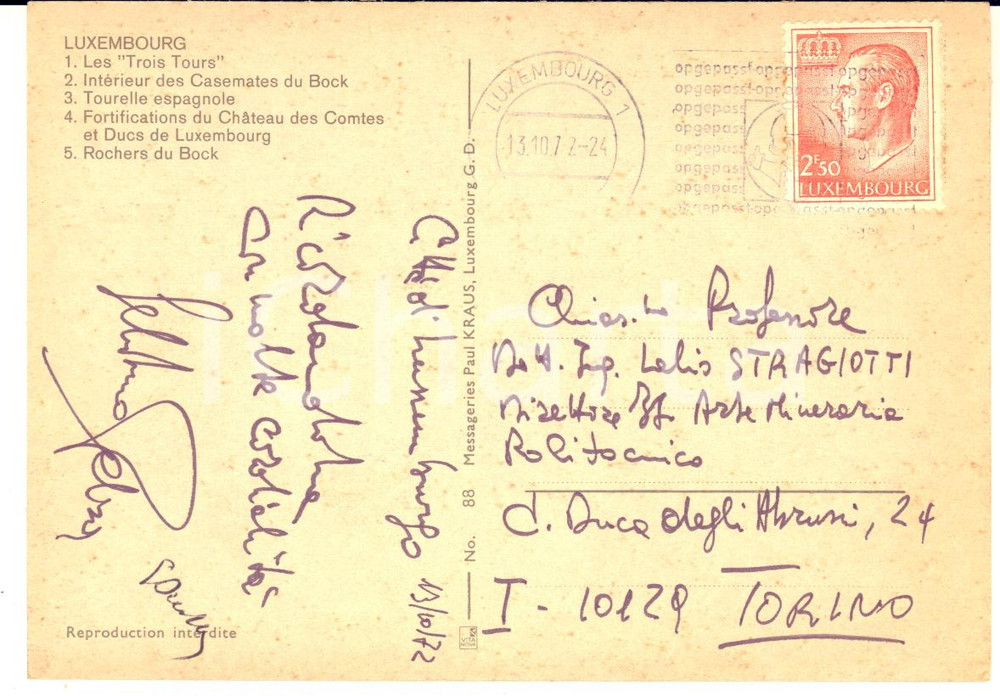 LUXEMBOURG
1. Les "Trois Tours"
2. Intérieur des Casemates du Bock
3. Tourelle espagnole
4. Fortifications du Château des Comtes
et Ducs de Luxembourg
5. Rochers du Bock
LUXEMBOURG 1
13.10.72-24
opgepasst-opgepasst-opgepasst
2F50
LUXEMBOURG
Città di Lussemburgo 13/10/72
Ricordandola
con molta cordialità
Reproduction interdite
No. 88 Messageries Paul KRAUS, Luxembourg G. D.
Chiar.mo Professore
Dott. Ing. Lelio STRAGIOTTI
Direttore Ist. Arte Mineraria
Politecnico
C. Duca degli Abruzzi, 24
I - 10129 TORINO